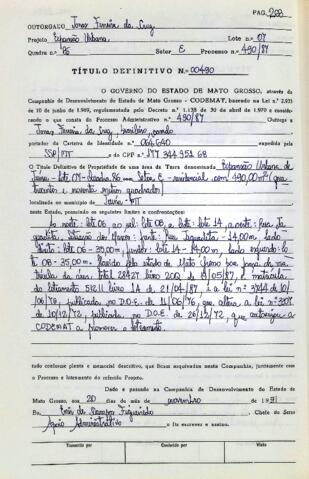 PAG. 208
OUTORGADO Jonas Ferreira da Cruz
Projeto Expansão Urbana Lote n.º 07
Quadra n.º 86 Setor E Processo n.º 490/87
TÍTULO DEFINITIVO N.º 00490
O GOVERNO DO ESTADO DE MATO GROSSO, através da
Companhia de Desenvolvimento do Estado de Mato Grosso - CODEMAT, baseado na Lei n.º 2.925
de 10 de junho de 1969, regulamentada pelo Decreto n.º 1.138 de 30 de abril de 1970 e resolvendo
o que consta do Processo Administrativo n.º 490/87 Outorga a
Jonas Ferreira da Cruz, brasileiro, casado
portador da Carteira de Identidade n.º 064.640 expedida pela
SSP/MT e do CPF n.º 177 344 951 68
O Título Definitivo de Propriedade de uma área de Terra denominada Expansão Urbana de
Juína - lote 07 - Quadra 86 - Setor E - residencial, com 490,00m² (qua
trocentos e noventa metros quadrados)
localizada no Município de Juína - MT
neste Estado, possuindo os seguintes limites e confrontações:
Ao norte: lote 06 ao sul: lote 08 a leste: lote 14, a oeste: Rua
14,00m, lado
direito: lote 06 - 35,00m, fundos: lote 14 - 14,00m, lado esquerdo: lo
te 08 - 35,00m.
livro 2CQ de 19/05/87, e matrícula
do loteamento 51211 livro 1A de 21/04/87, e a lei nº 3744 de 10/
06/76, publicada no D.O.E. de 11/06/76, que altera a lei nº 3307
de 10/12/72, publicada no D.O.E. de 26/12/72, que autoriza a
CODEMAT a promover o loteamento.
tudo conforme planta e memorial descritivo, que ficam arquivados nesta Companhia, juntamente com
o Processo e loteamento do referido Projeto.
Dado e passado na Companhia de Desenvolvimento do Estado de
Mato Grosso, aos 20 dias do mês de novembro de 1991
Eu, Enis de Campos Figueiredo Chefe do Setor
Apoio Administrativo o fiz escrever e assino.
Transcrito por Conferido por Visto